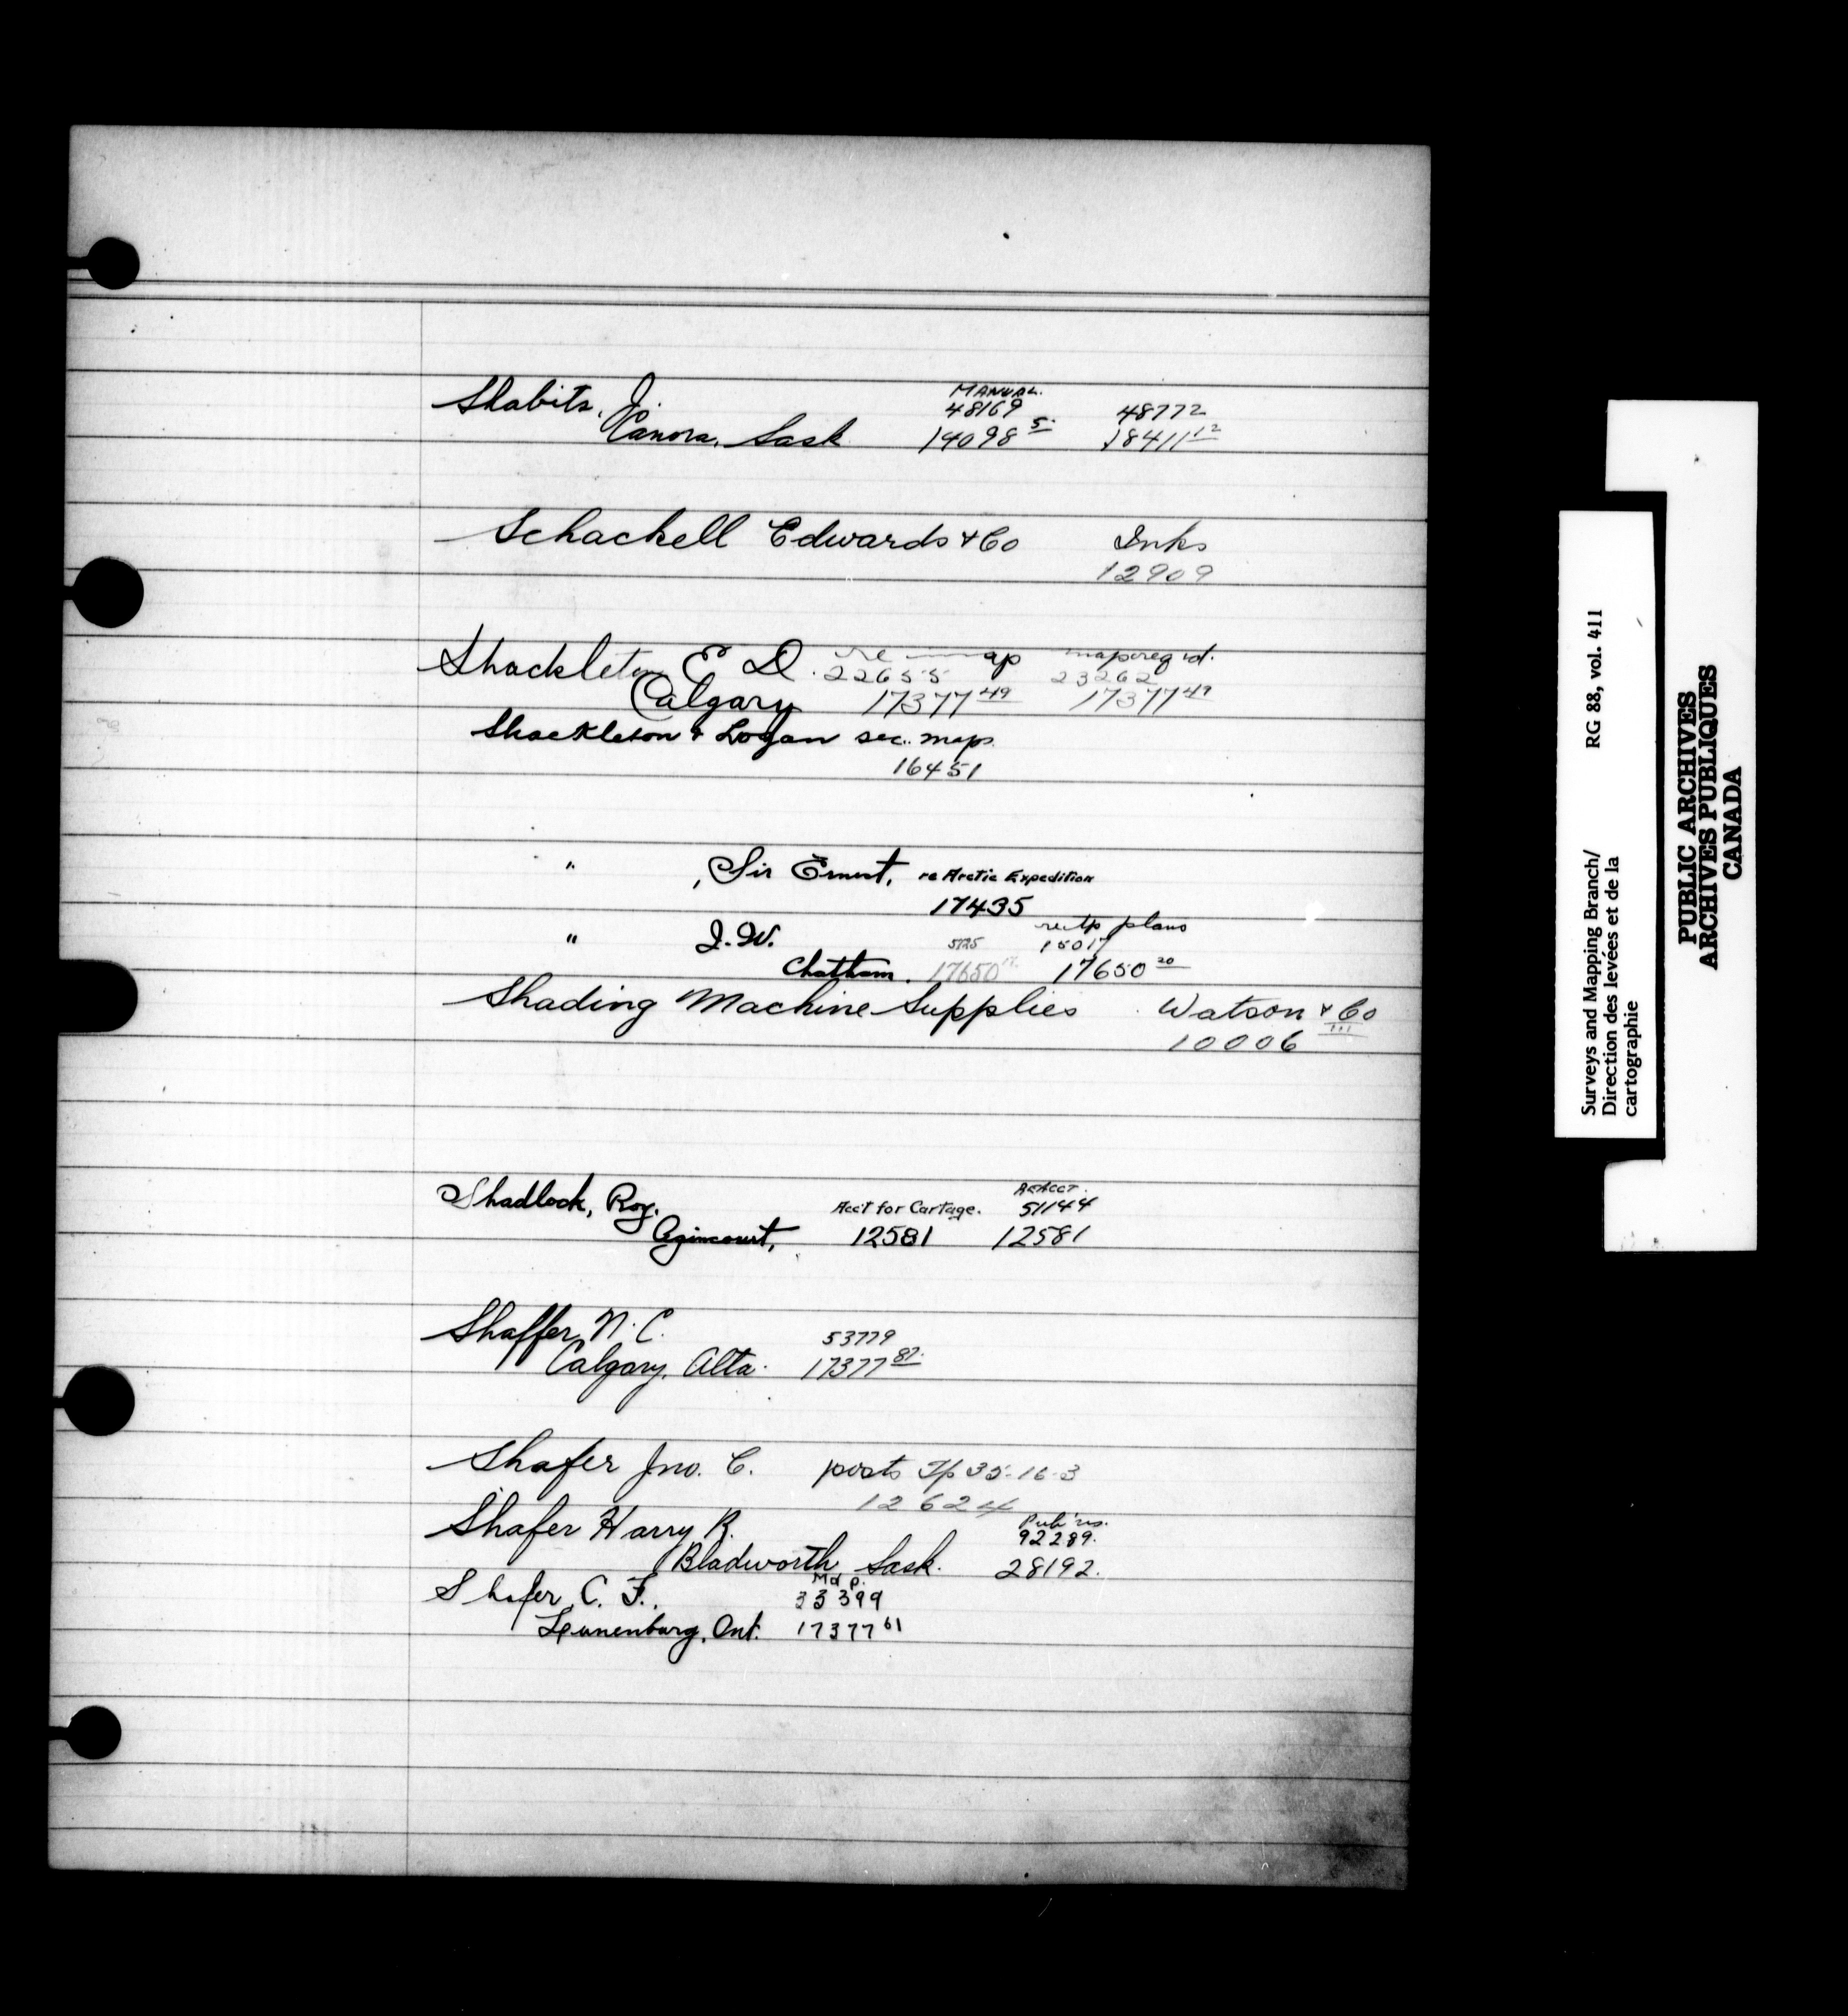 MANUAL.
Shabits, J. 48169 48772
Canora, Sask 14098 5. 18411 12
Schackell Edwards & Co Inks
12909
Shackleton E D. re map map req'd.
22655 23262
Calgary 17377 49 17377 49
Shackleton & Logan sec. maps.
16451
" , Sir Ernest, re Arctic Expedition
17435
" J. W. 5725 re tp plans
15017
Chatham. 17650 17650 20
Shading Machine Supplies Watson & Co
10006 III
Shadlock, Roy. Acct for Cartage. Re Acct.
51144
Agincourt, 12581 12581
Shaffer, N. C. 53779
Calgary, Alta. 17377 87.
Shafer Jno. C. posts Tp 35-16-3
12624
Shafer Harry R. Pub'ns.
92289.
Bladworth, Sask. 28192.
Shafer, C. F., Map.
33399
Lunenburg, Ont. 17377 61
Surveys and Mapping Branch/ RG 88, vol. 411
Direction des levées et de la
cartographie
PUBLIC ARCHIVES
ARCHIVES PUBLIQUES
CANADA